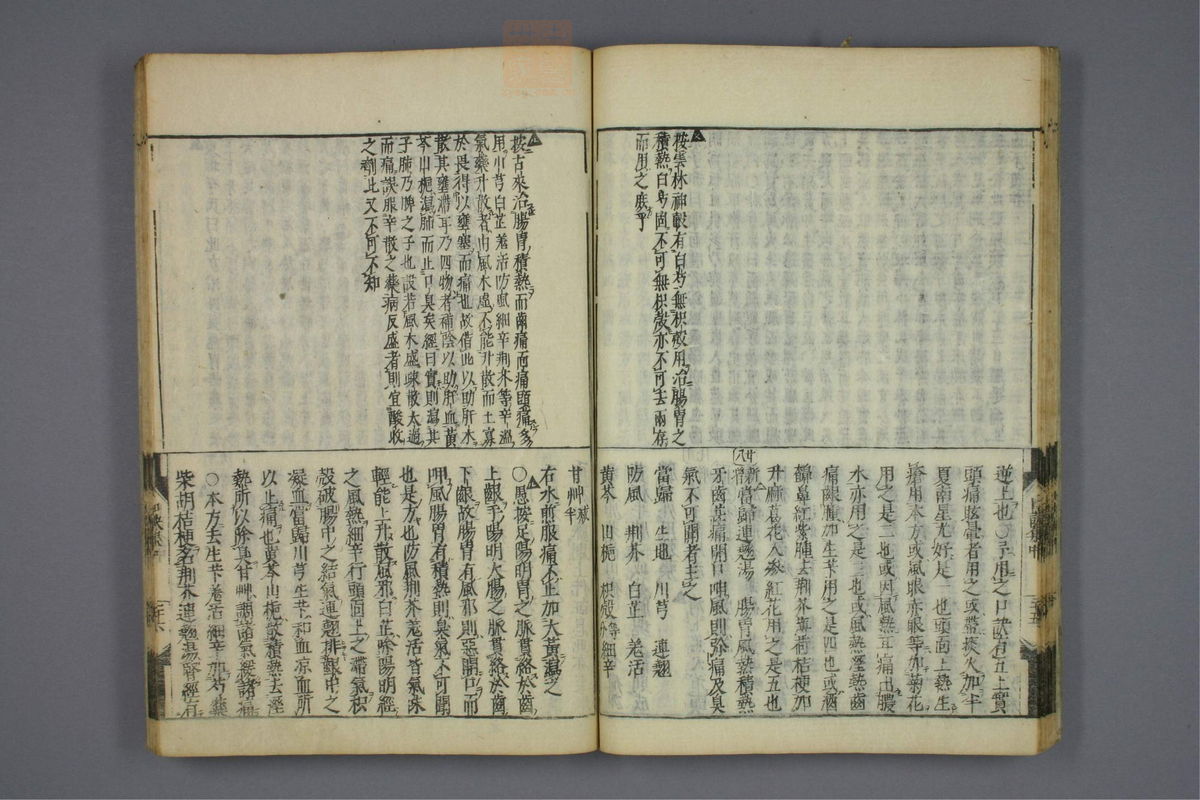 按雲林神彀有白芍無枳殼用治腸胃之
積熱白芍固不可無枳殼亦不可去兩存
而用之庶乎
逆上也○予用之口訣有五上實
頭痛眩暈者用之或帶痰火加半
夏南星尤好是一也頭面上熱生
瘡用本方或風眼赤眼等加菊花
用之是二也或因風熱耳痛出膿
水亦用之是三也或風熱溼熱齒
痛齦腫加生芐用之是四也或酒
齄鼻紅紫腫去荊芥薄荷桔梗加
升麻葛花人參紅花用之是五也
廿八
新增當歸連翹湯 腸胃風熱積熱
牙齒甚痛開口呷風則疼痛及臭
氣不可聞者主之
當歸 生地 川芎 連翹
防風 荊芥 白芷 羌活
黃芩 山梔 枳殼各等分 細辛
按古來治腸胃積熱而齒痛面痛頭痛多
用川芎白芷羌活防風細辛荊芥等辛溫
氣藥升散者由風木虛不能升散而土寡
於畏得以壅塞而痛也故借此以助肝木
散其壅滯耳乃四物者補陰以助肝血黃
芩山梔瀉肺而止口臭矣經曰實則瀉其
子肺乃脾之子也設若風木盛疎散太過
而痛誤服辛散之藥病反盛者則宜酸收
之劑此又不可不知
甘艸減半
右水煎服痛不止加大黃瀉之
○愚按足陽明胃之脈貫絡於齒
上齦手陽明大腸之脈貫絡於齒
下齦故腸胃有風邪則惡開口而
呷風腸胃有積熱則臭氣不可聞
也是方也防風荊芥羌活皆氣味
輕能上升散風邪白芷除陽明經
之風熱細辛行頭面上之滯氣枳
殼破腸中之結氣連翹排齦中之
凝血當歸川芎生芐和血涼血所
以止痛也黃芩山梔散積熱去溼
熱所以除臭甘艸調諸氣緩諸痛
○本方去生芐羌活細辛加芍藥
柴胡桔梗名荊芥連翹湯醫經有